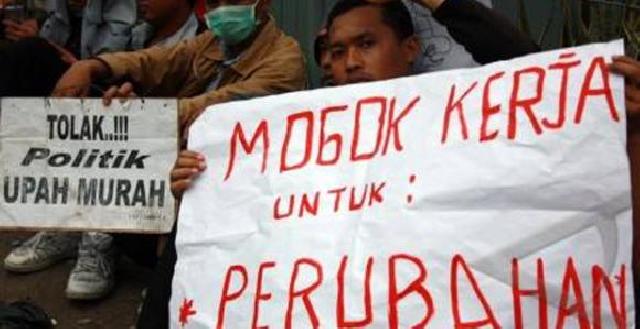 TOLAK..!!!
Politik
UPAH MURAH
MOGOK KERJA
UNTUK :
* PERUBAHAN